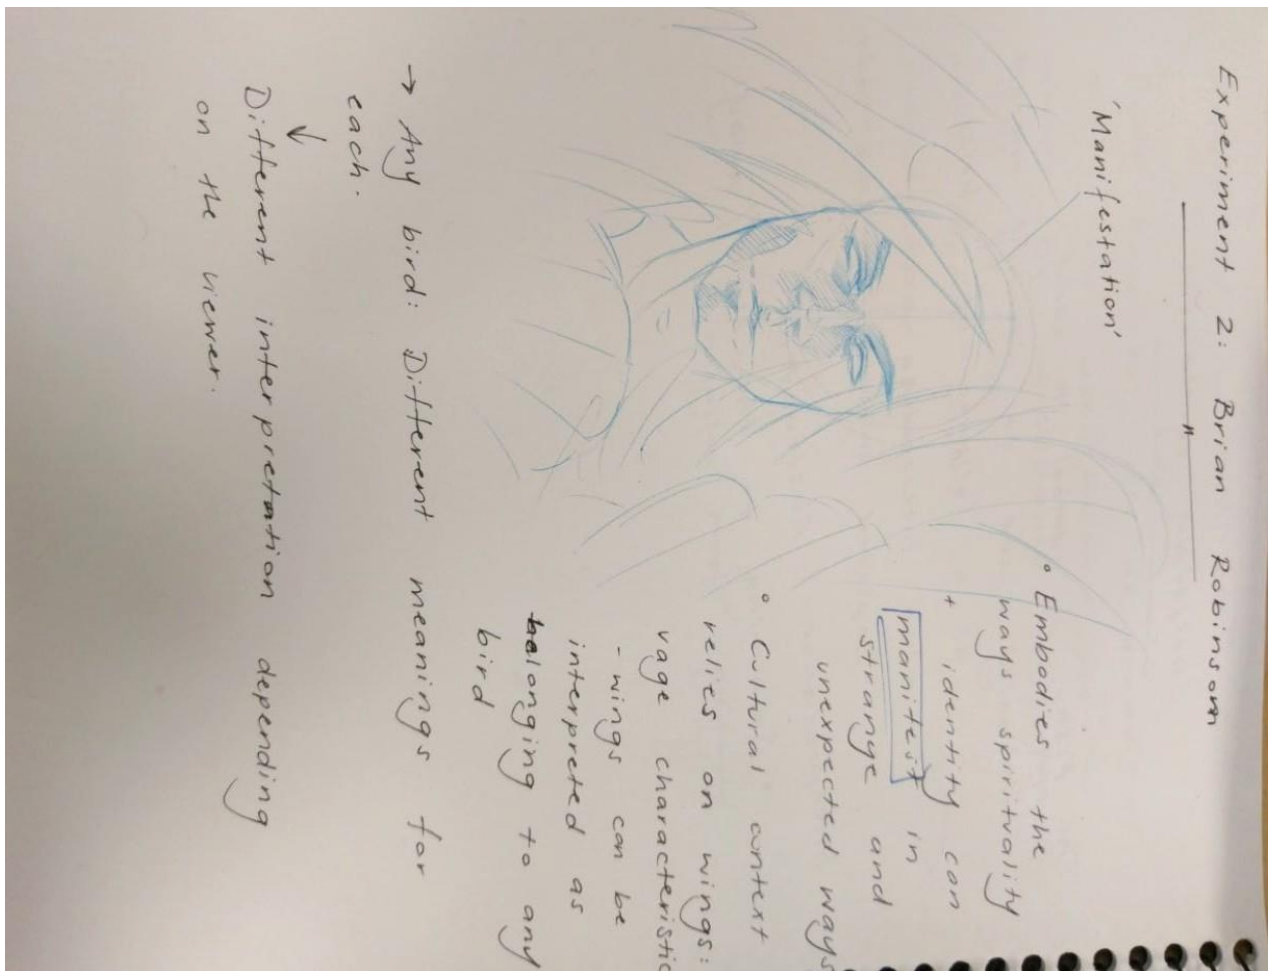 Experiment 2: Brian Robinson
"
'Manifestation'
° Embodies the
ways spirituality
+ identity can
manifest in
strange and
unexpected ways
° Cultural context
relies on wings:
vage characteristic
- wings can be
interpreted as
belonging to any
bird
→ Any bird: Different meanings for
each.
↓
Different interpretation depending
on the viewer.